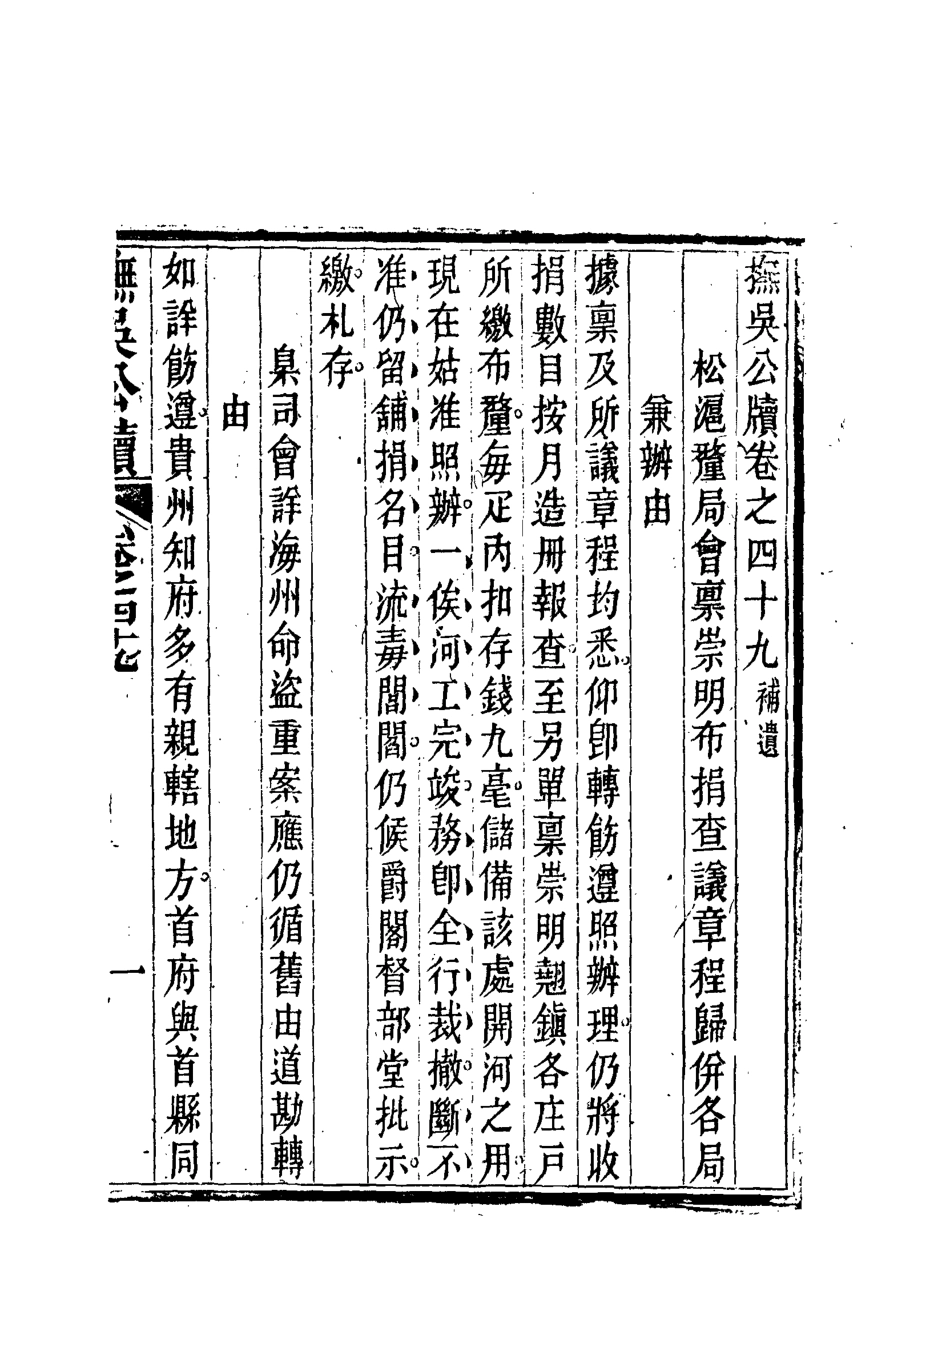 撫吳公牘卷之四十九 補遺
松滬釐局會稟崇明布捐查議章程歸併各局
兼辦由
據稟及所議章程均悉。仰即轉飭遵照辦理。仍將收
捐數目按月造冊報查。至另單稟崇明翹鎮各庄戸
所繳布釐。每疋內扣存錢九毫。儲備該處開河之用。
現在姑准照辦。一俟河工完竣。務即全行裁撤。斷不
准仍留舖捐名目。流毒閭閻。仍候爵閣督部堂批示。
繳。札存。
臬司會詳海州命盜重案應仍循舊由道勘轉
由
如詳飭遵。貴州知府多有親轄地方。首府與首縣同
撫吳公牘 卷之四十九 一